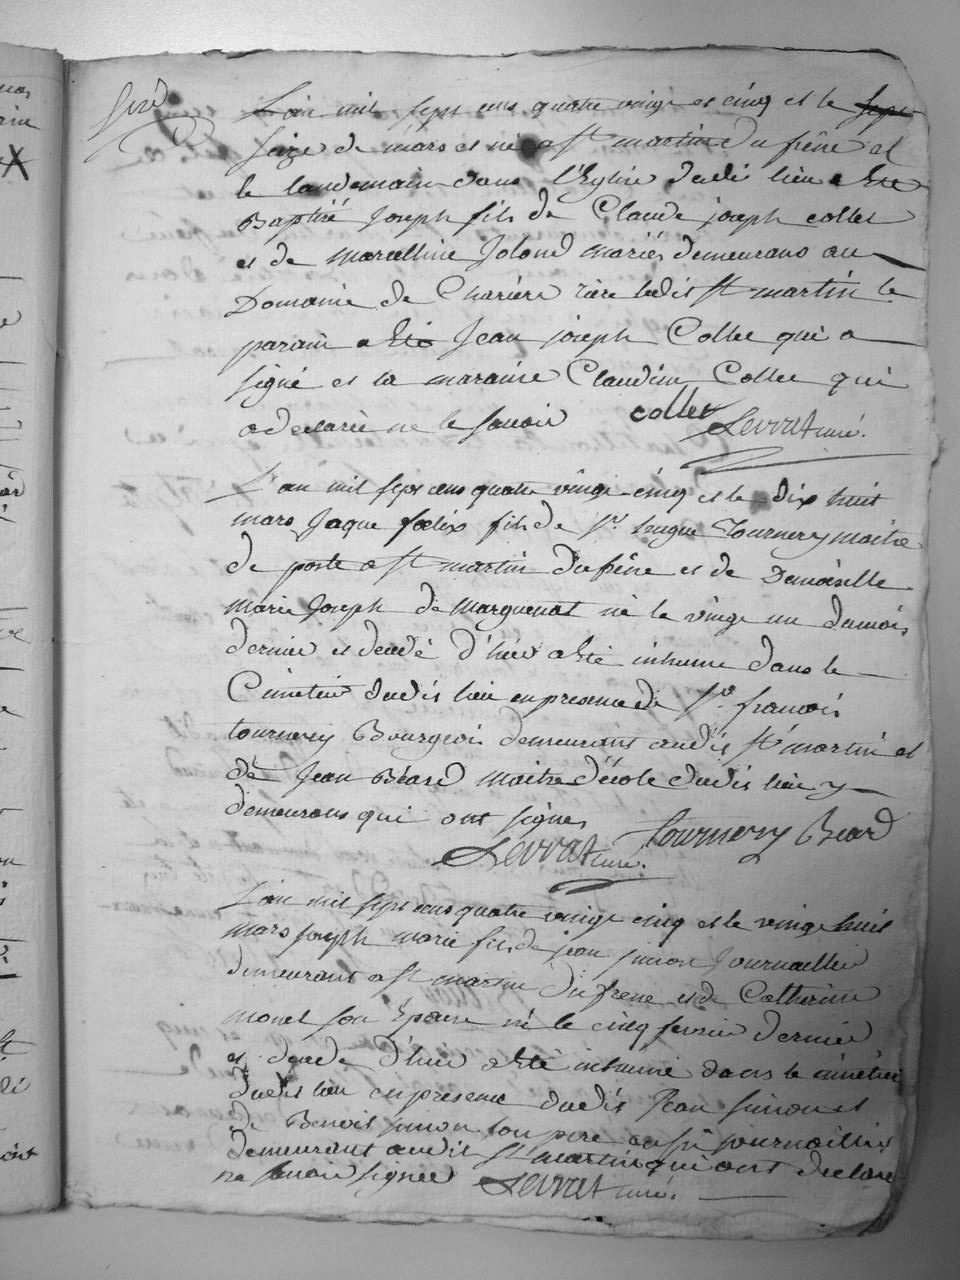 L'an mil sept cens quatre vingt et cinq et le sept
seize de mars est né a St martin du frêne et
le landemain dans l'Eglise dudit lieu a Eté
Baptisé Joseph fils de Claude joseph collet
et de marcelline Jolond mariés demeurans au
Domaine de Charière rière ledit St martin le
parain a Eté Jean joseph Collet qui a
signé et la maraine Claudine Collet qui
a declaré ne le savoir collet Levrat curé.
L'an mil sept cens quatre vingt cinq et le dix huit
mars Jaque foelix fils de Sr hugue Tournery maitre
de poste a St martin du frêne et de Demoiselle
marie Joseph de Marquenat né le vingt un du mois
dernier et decedé d'hier a Eté inhumé dans le
Cimetier dudit lieu en presence de Sr francois
tournery Bourgeois demeurant audit St martin et
de Jean Béard maitre d'école dudit lieu y
demeurans qui ont signés
Levrat curé. Tournery Beard
L'an mil sept cens quatre vingt cinq et le vingt huit
mars joseph marie fils de jean simon Journaillier
demeurant a St martin du frene et de Catherine
monet son Epouse né le cinq fevrier dernier
et decedé d'hier a Eté inhumé dans le cimetier
dudit lieu en presence dudit Jean simon et
de Benoit simon son pere aussi journaillier
demeurant audit St martin qui ont declaré
ne savoir signer Levrat curé.